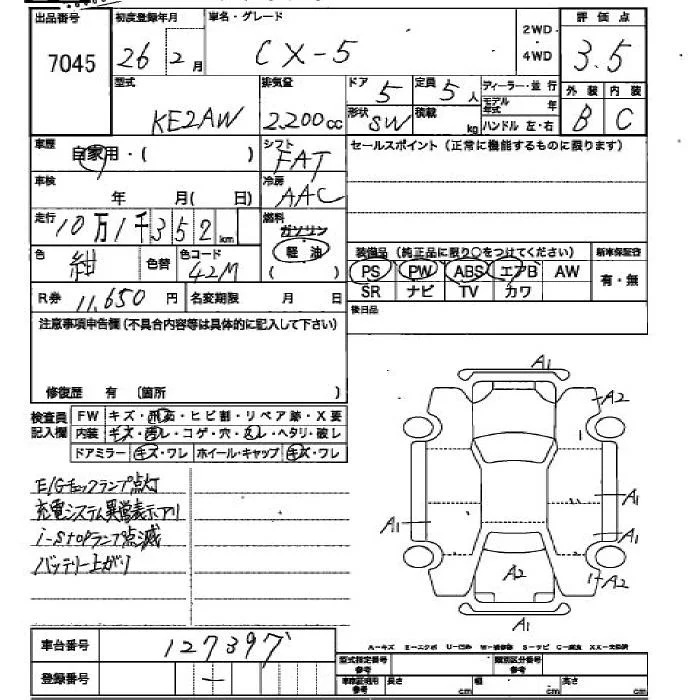 出品番号 初度登録年月 車名・グレード 評価点
7045 26年2月 CX-5 2WD・4WD 3.5
型式 排気量 ドア 5 定員 5人 ディーラー・並行 外装 内装
KE2AW 2,200cc 形状 SW 積載 kg モデル年式 年 B C
ハンドル 左・右
車歴 自家用・( ) シフト FAT セールスポイント(正常に機能するものに限ります)
車検 年 月( 日) 冷房 AAC
走行 10万1千352km 燃料 ガソリン
軽油
( )
色 紺 色替 色コード 42M 装備品(純正品に限り○をつけてください) 新車保証書
PS PW ABS エアB AW 有・無
R券 11,650円 名変期限 月 日 SR ナビ TV カワ
注意事項申告欄(不具合内容等は具体的に記入して下さい) 後日品
修復歴 有 〔箇所 〕
検査員記入欄 FW キズ・飛石・ヒビ割・リペア跡・X要
内装 キズ・汚レ・コゲ・穴・スレ・ヘタリ・破レ
ドアミラー キズ・ワレ ホイール・キャップ キズ・ワレ
E/Gチェックランプ点灯
充電システム異常表示アリ
i-stopランプ点滅
バッテリー上がり
A1
A2
A1
A1
A1
A2
A2
A1
車台番号 127397
登録番号 —
A-キズ E-エクボ U-凹み W-補修跡 S-サビ C-腐食 XX-交換済
型式指定番号 参考 類別区分番号 参考
車庫証明用 参考 長さ cm 幅 cm 高さ cm